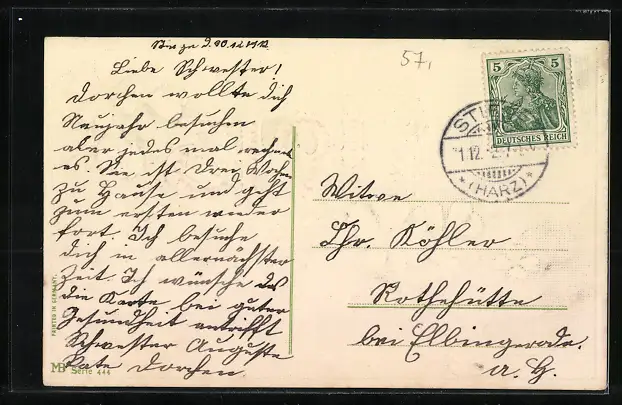 57,
Liebe Schwester!
Dorchen wollte dich
Neujahr besuchen
aber jedes mal
es. Sie ist drei Wochen
zu Hause und geht
zum ersten wieder
fort. Ich besuche
dich in allernächster
Zeit. Ich wünsche das
die Karte bei guter
Gesundheit antrifft
Schwester Auguste
Pate Dorchen.
5 5
DEUTSCHES REICH
1.12.
*(HARZ)*
Witwe
Chr. Köhler
Rothehütte
bei Elbingerode.
a. H.
PRINTED IN GERMANY.
MB Serie 444